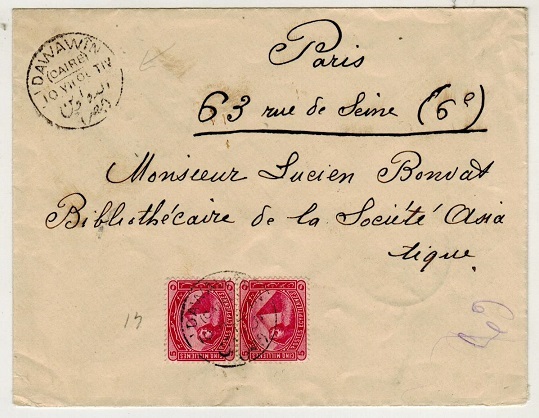 DAWAWIN
(CAIRE)
Paris
63 rue de Seine (6e)
Monsieur Lucien Bonvat
Bibliothécaire de la Société Asia
tique
CINQ MILLIEMES
CINQ MILLIEMES